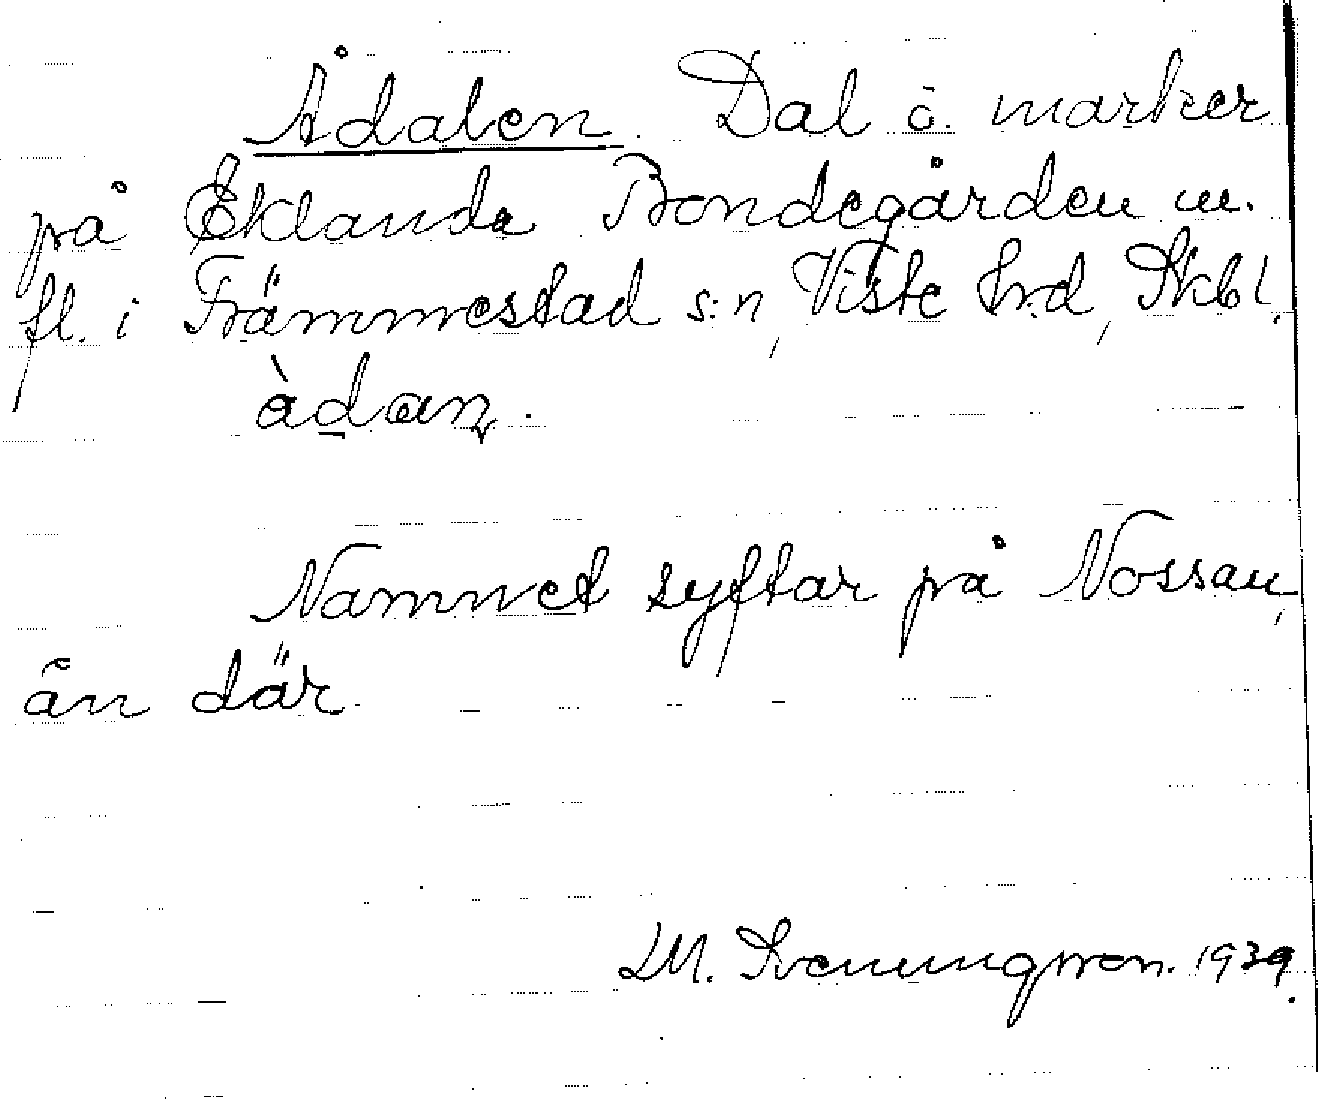 Ådalen. Dal ö. marker
på Eklanda Bondegården m.
fl. i Främmestad s:n, Viste hrd, Skbl.
àdan.
Namnet syftar på Nossan,
ån där.
LM. Svenungsson. 1939.